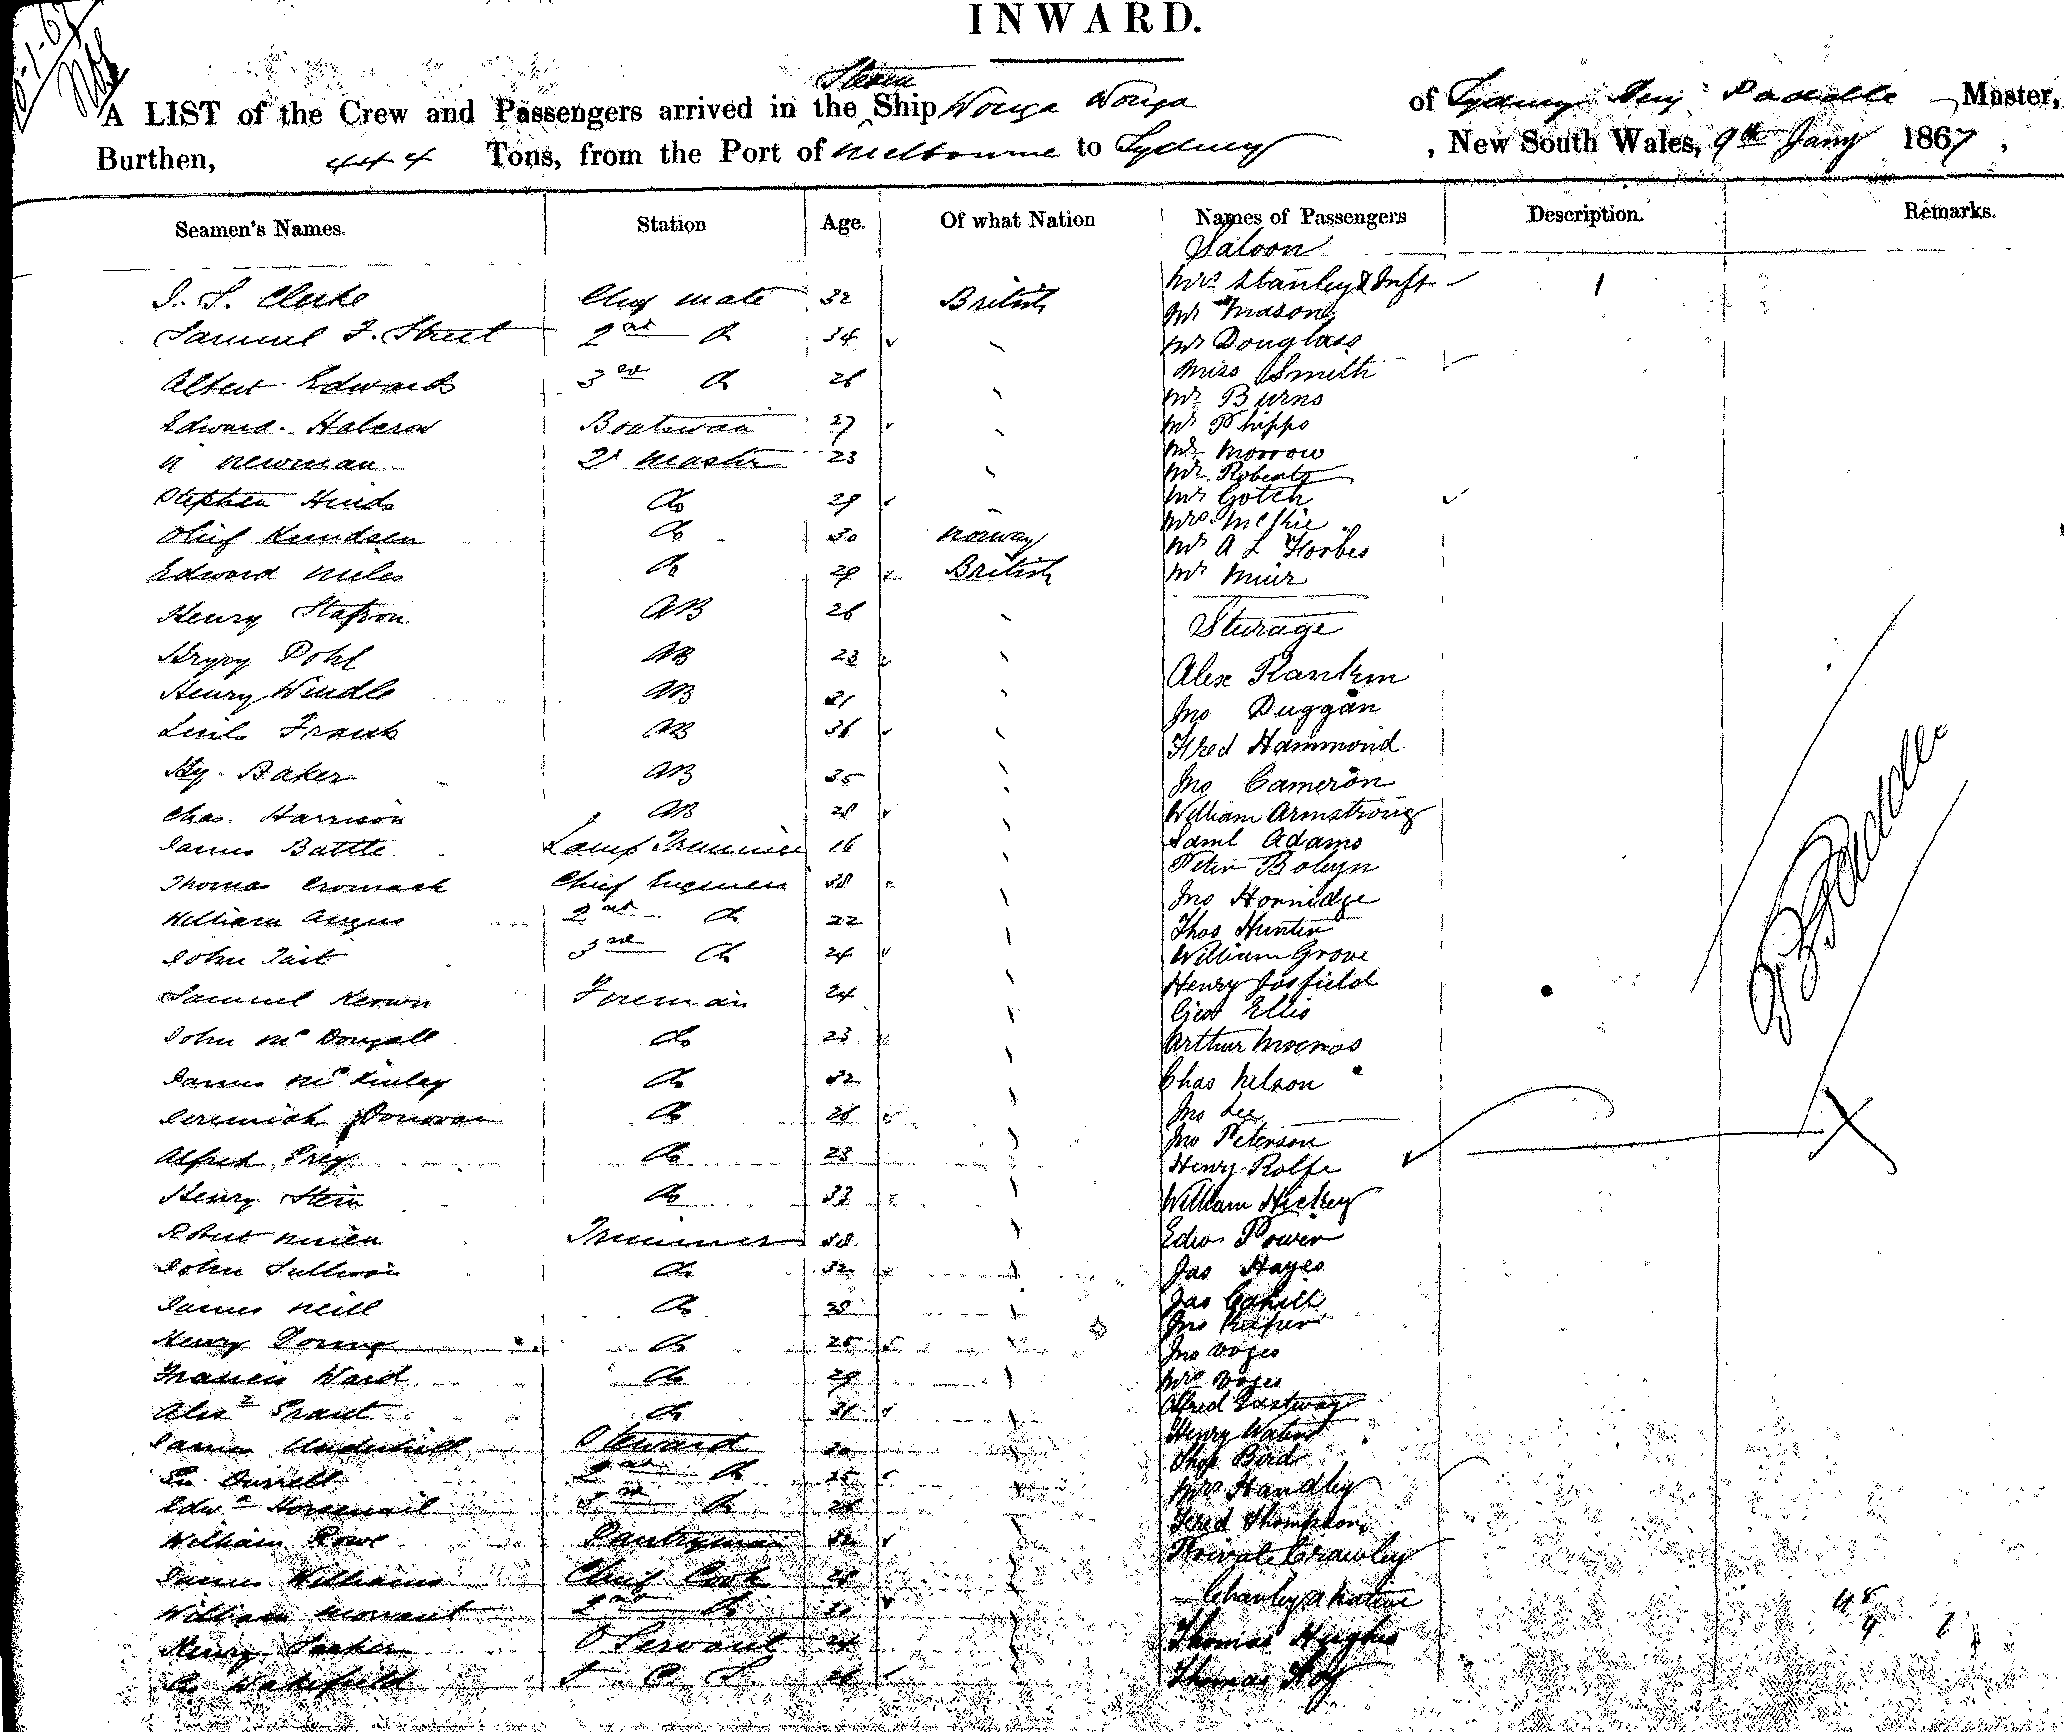 INWARD.
A LIST of the Crew and Passengers arrived in the Steam Ship Wonga Wonga of Sydney Master,
Burthen, 444 Tons, from the Port of Melbourne to Sydney, New South Wales, 9th Jany 1867,
Seamen's Names. Station Age. Of what Nation Names of Passengers Description. Remarks.
Saloon
Mrs Stanley & Inft 1
Clerke Chief mate 32 British
Mr Mason
Samuel F. Street 2nd Do 34
Mr Douglass
Miss Smith
Albert Edwards 3rd Do 26
Mr Burns
Edward Halcrow Boatswain 27
Mr Phipps
Mr Morrow
Newman Qr Master 23
Mr Roberts
Stephen Hinds Do 29
Mr Gotch
Mrs McKie
Oluf Knudsen Do 30 Norway
Mr A L Forbes
Edward Miles Do 29 British
Mr Muir
Henry AB 26
Steerage
Pohl AB 23
Alex Rankin
Henry Windle AB 21
Jno Duggan
Frank AB 36
Fred Hammond
Hy. Baker AB 35
Jno Cameron
Chas. Harrison AB 28
William Armstrong
Saml Adams
James Battle Lamp Trimmer 16
Peter Boleyn
Thomas Cromack Chief Engineer 38
Jno Hornidge
William Angus 2nd Do 22
Thos Hunter
John Tait 3rd Do 24
William Grove
Henry Josfield
Samuel Kerwn Foreman 24
Geo Ellis
John McDougall Do 23
Arthur
James McKinley Do 32
Chas Nelson
Jeremiah Donovan Do 26
Jno Lee
Jno Peterson
Alfred Do 23
Henry Rolfe
Henry Stein Do 33
William Hickey
Robert Trimmer 38
Edw Power
John Sullivan Do 32
Jas Hayes
James Neill Do 28
Jas Cahill
Jno
Henry Young Do 25
Jno Voges
Francis Ward Do 29
Mrs Voges
Alexr Grant Do 31
Alfred Eastway
Henry Waters
James Underhill Steward 30
Thos Bird
Durrell 2nd Do 25
Mrs Handley
Edwd Horsenail 3rd Do 28
Fred Thompson
William Rowe Pantryman 32
Private Crawley
James Williams Chief Cook 28
Charley a Native
William Morant 2nd Do 30
Henry Servant 24
Thomas Hughes
Wakefield 26
Thomas Foy